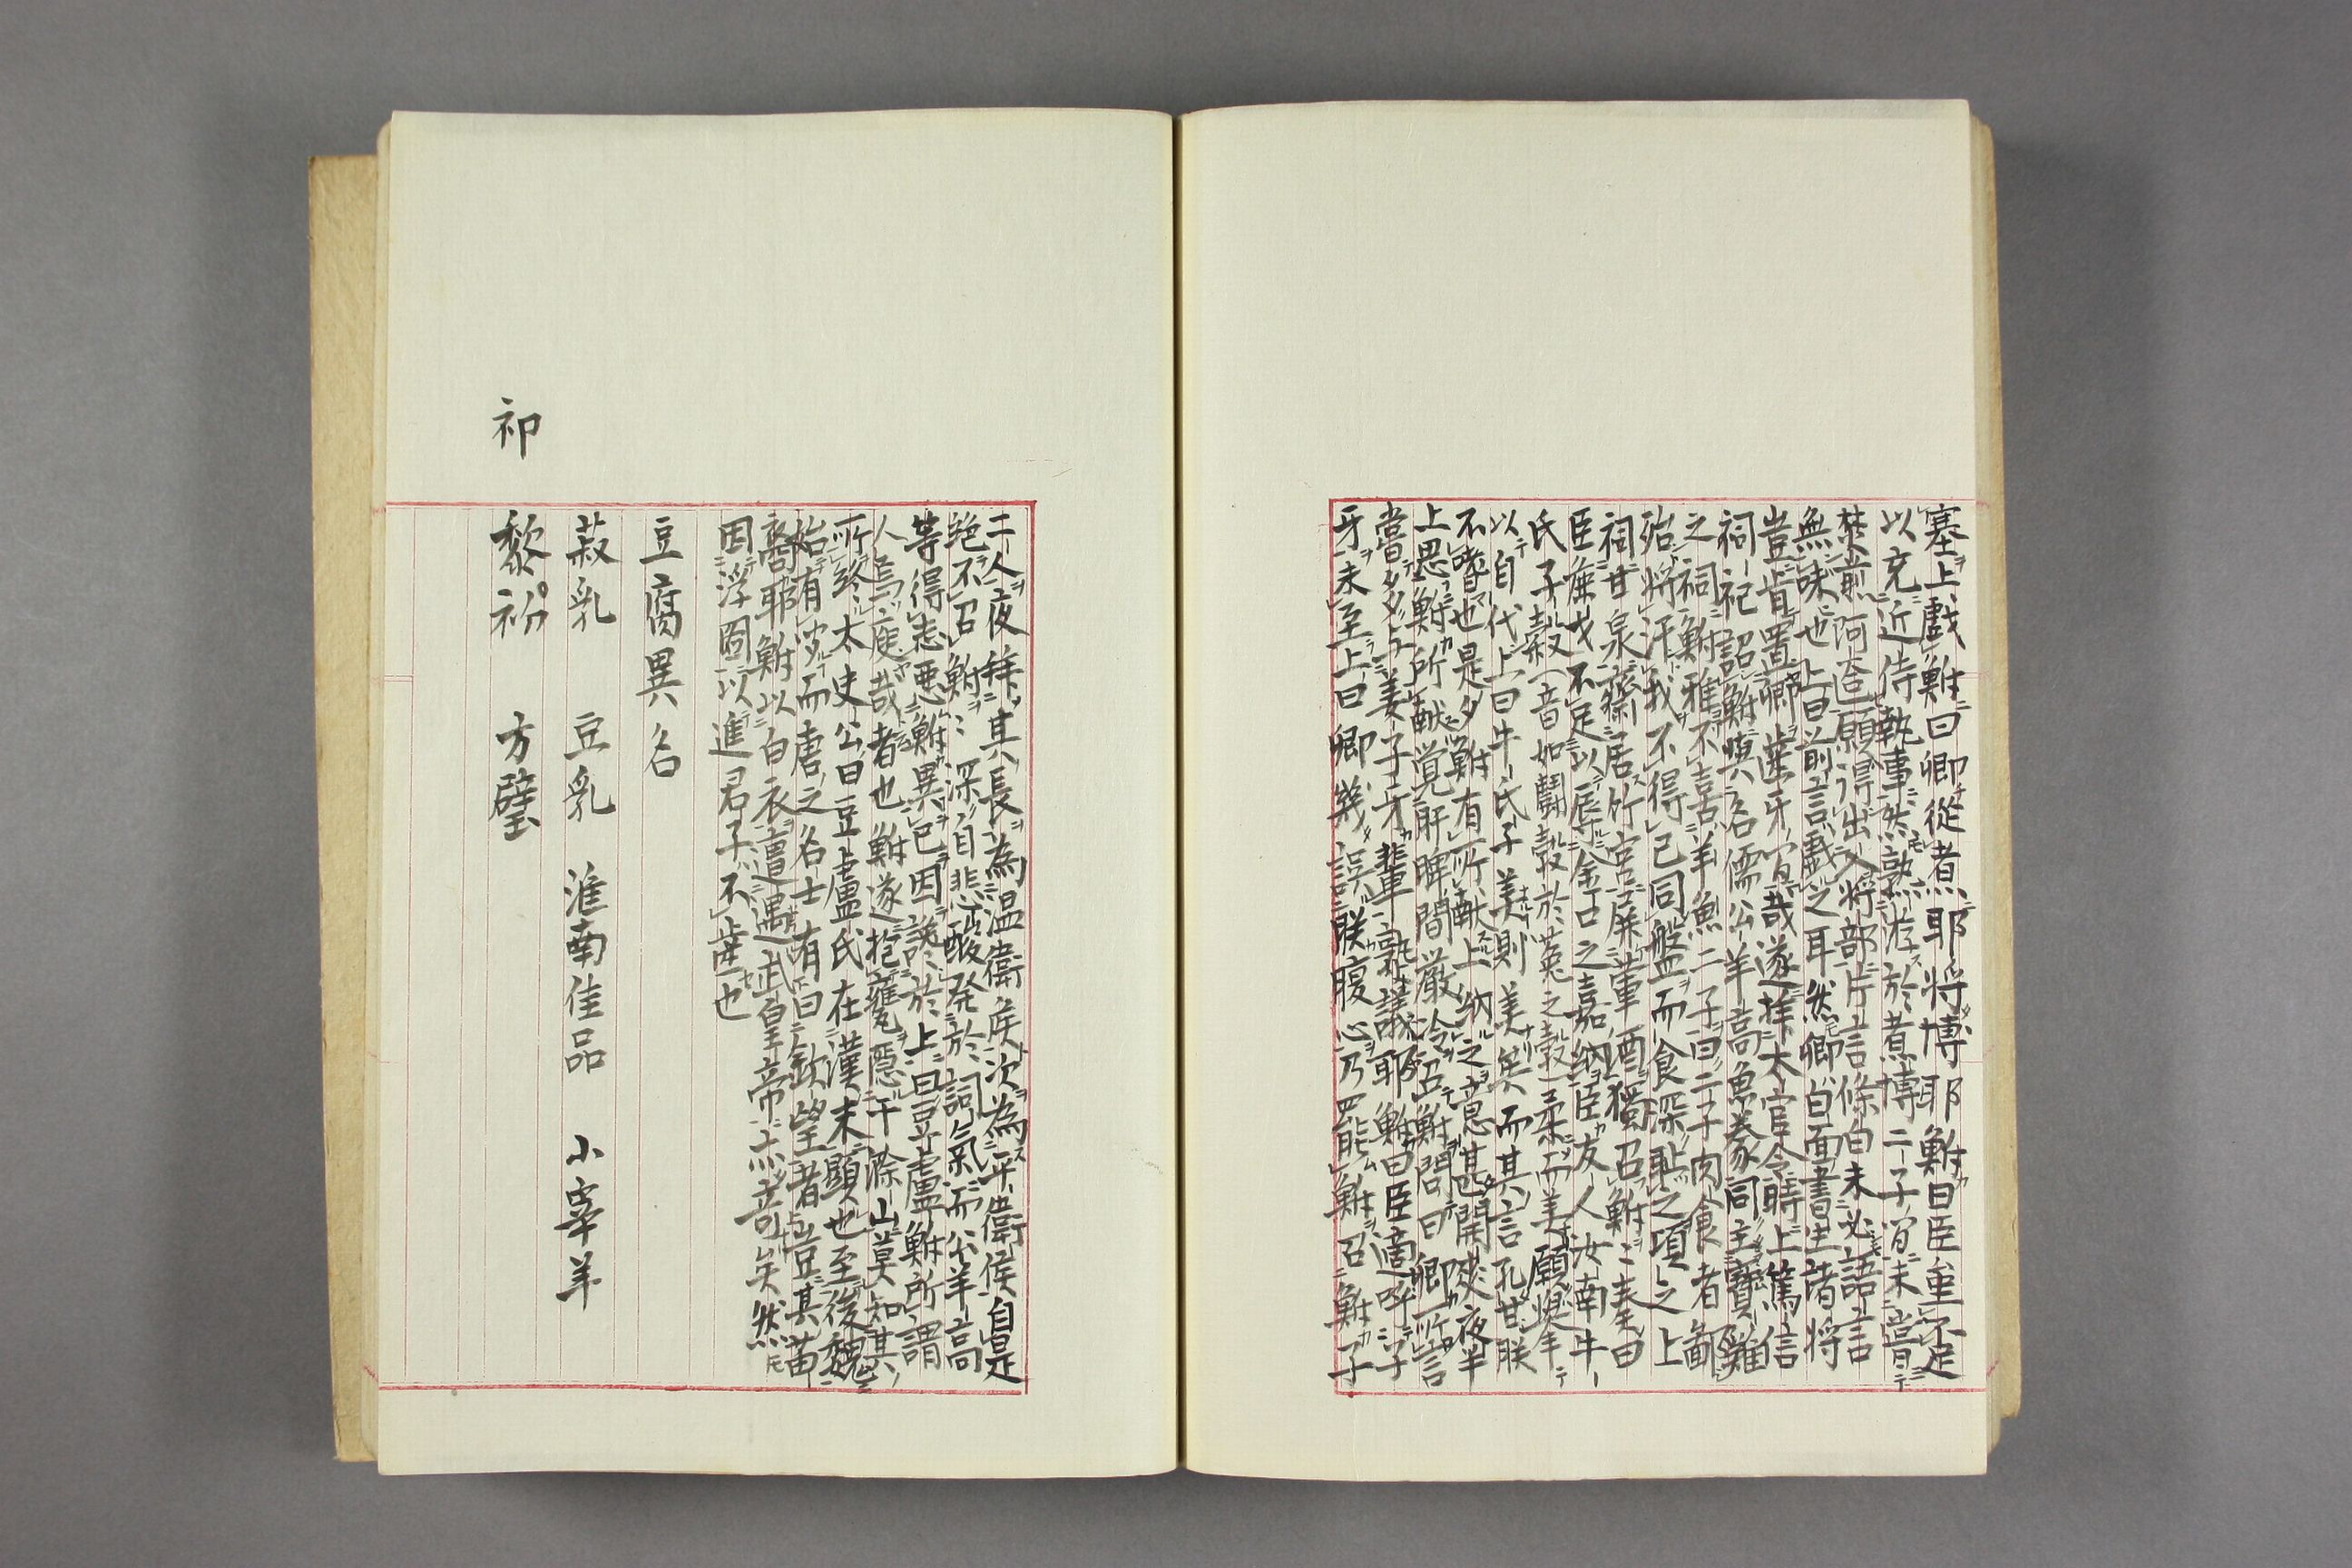 塞上戯鮒曰卿從煮耶将博耶鮒曰臣垂不足
以充近侍執事然熟游於煮博二子間未嘗
焚煎阿匼願得出入将部片言條白未必語言
無味也上曰前言戯之耳然卿白面書生諸将
豈肯置卿歯牙間哉遂拜太官令時上篤信
祠祀詔鮒慎名儒公羊高魚豢同主寶雞
之祠鮒雅不喜羊魚二子曰二子肉食者鄙
殆将汙我不得已同盤而食深耻之項之上
祠甘泉齋居竹宮屏葷酒獨召鮒〻奏曰
臣庸才不足以辱金口之嘉納臣友人汝南牛
氏子穀音如鬪穀於菟之穀柔而美願燠手
以自代上曰牛氏子美則美矣而其言孔甘朕
不嗜也是夕鮒有所献上納之意甚開爽夜半
上思鮒所献覚肝脾間厳冷召鮒問曰卿所言
嘗多与姜子牙輩熟議耶鮒曰臣適呼子
牙未至上曰卿幾誤朕腹心乃罷鮒召鮒子
二人夜拜其長為温衛侯次為平衛侯自是
絶不召鮒〻深自悲酸発於詞氣而公羊高
等得志悪鮒異己因譖於上曰豆盧鮒所謂
人焉廋哉者也鮒遂抱甕隠于滁山莫知其
所終太史公曰豆盧氏在漢末顕也至後魏
始有聞而唐之名士有曰欽望者豈其苗
裔耶鮒以白衣遭遇武皇帝亦奇矣然
因浮圖以進君子不歯也
豆腐異名
菽乳 豆乳 淮南佳品 小宰羊
黎祁 方璧
祁